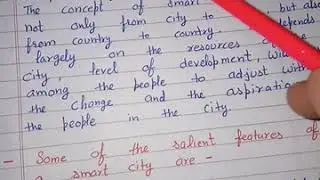 The concept of smart but also
not only from city to
from country to country depends
largely on the resources of the
city, level of development, will
among the people to adjust with
the change and the aspiration
the people in the city.
- Some of the salient features of
a smart city are -